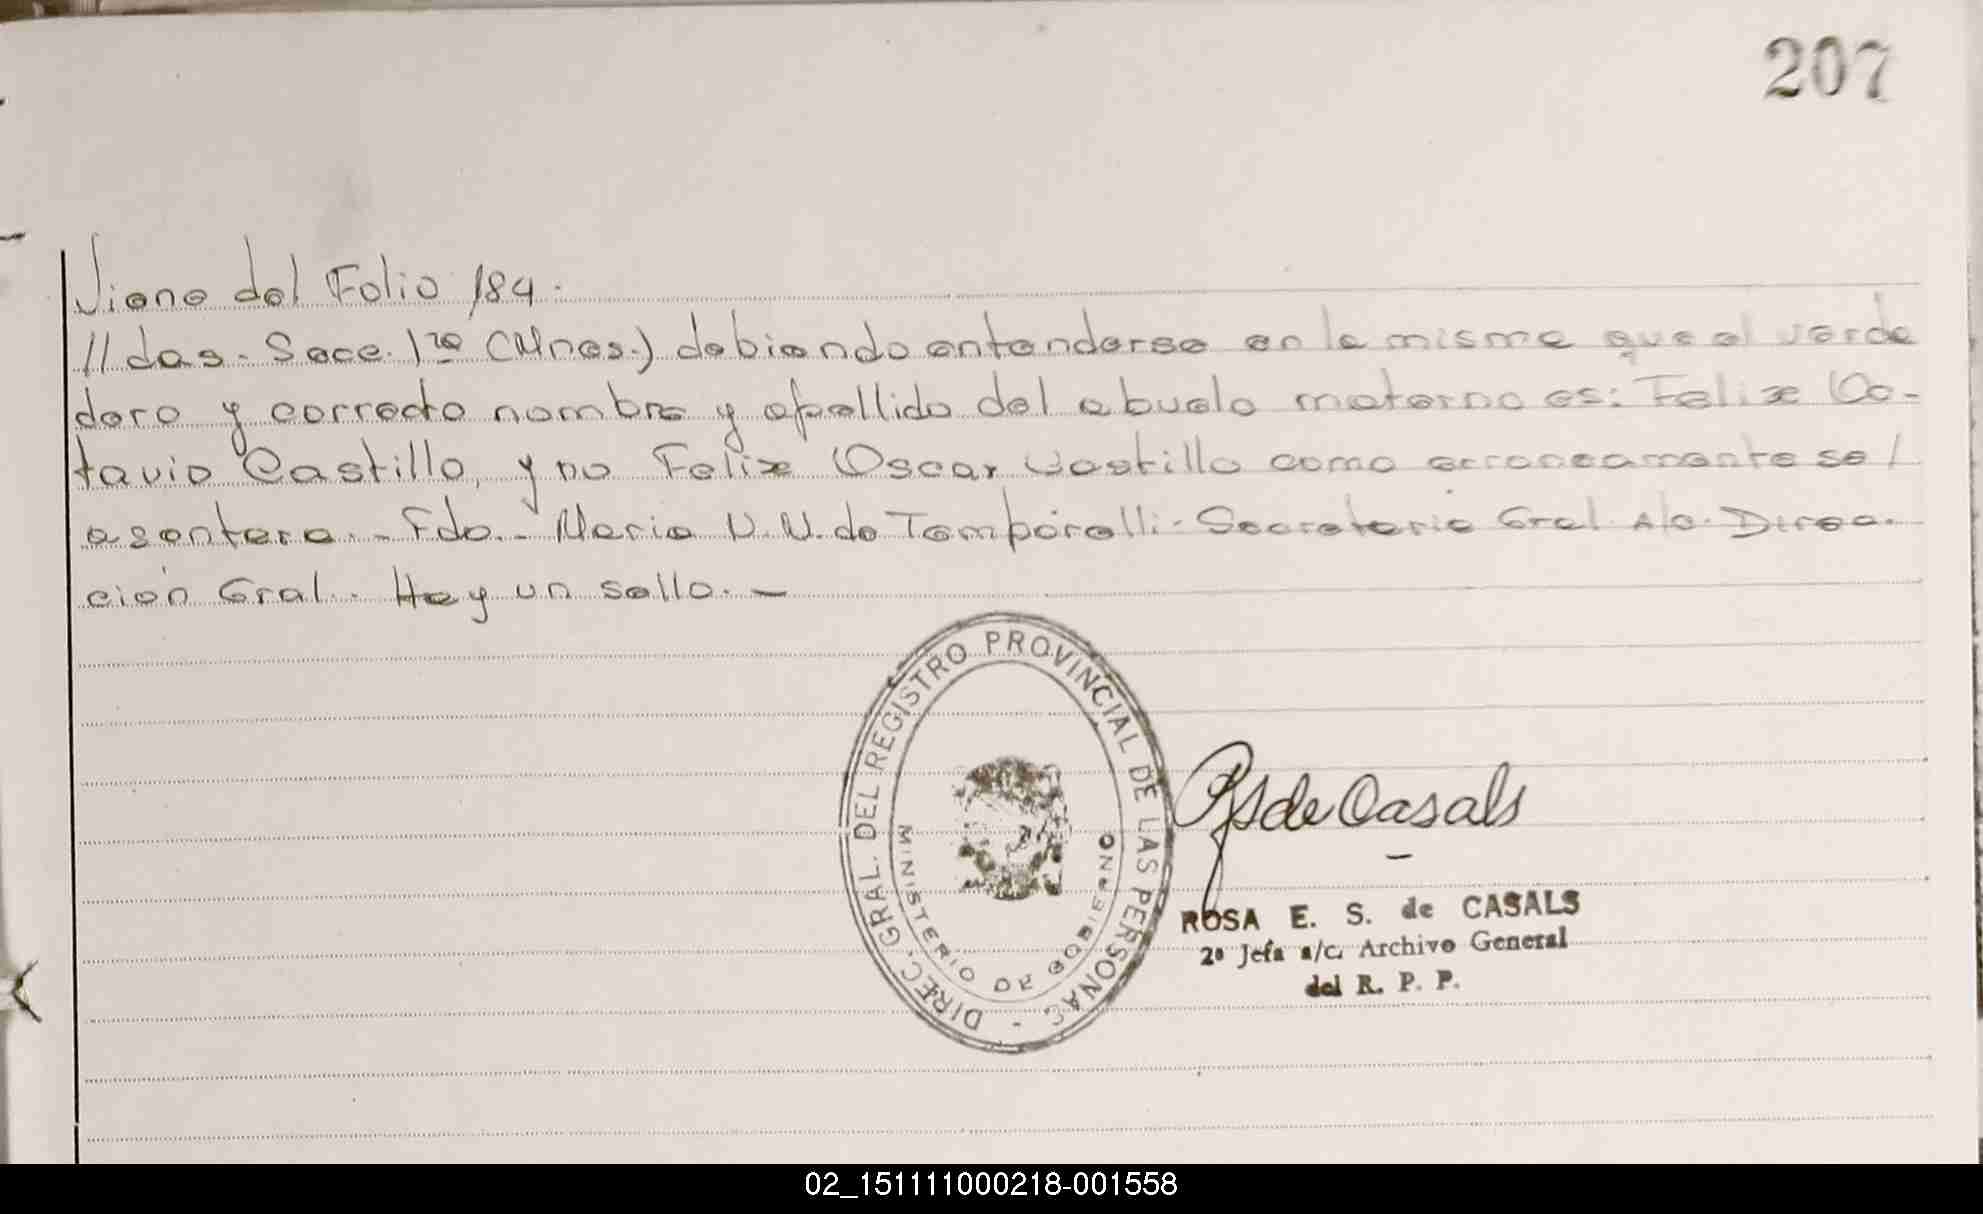 207
Viene del Folio 184.
//das. Secc. 1ra (Mnes.) debiendo entenderse en la misma que el verda
dero y correcto nombre y apellido del abuelo materno es: Felix Oc-
tavio Castillo, y no Felix Oscar Castillo como erroneamente se /
asentara.- Fdo.- Maria de Temporelli- Secretaria Gral A/c. Direc-
ción Gral. Hay un sello.-
DIREC. GRAL. DEL REGISTRO PROVINCIAL DE LAS PERSONAS -
MINISTERIO DE GOBIERNO
RS de Casals
ROSA E. S. de CASALS
2º Jefa a/c. Archivo General
del R. P. P.
02_151111000218-001558